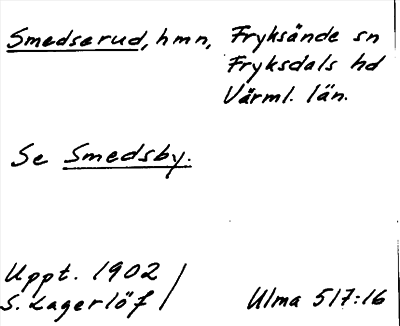 Smedserud, hmn, Fryksände sn
Fryksdals hd
Värml. län.
Se Smedsby.
Uppt. 1902
S. Lagerlöf
Ulma 517:16